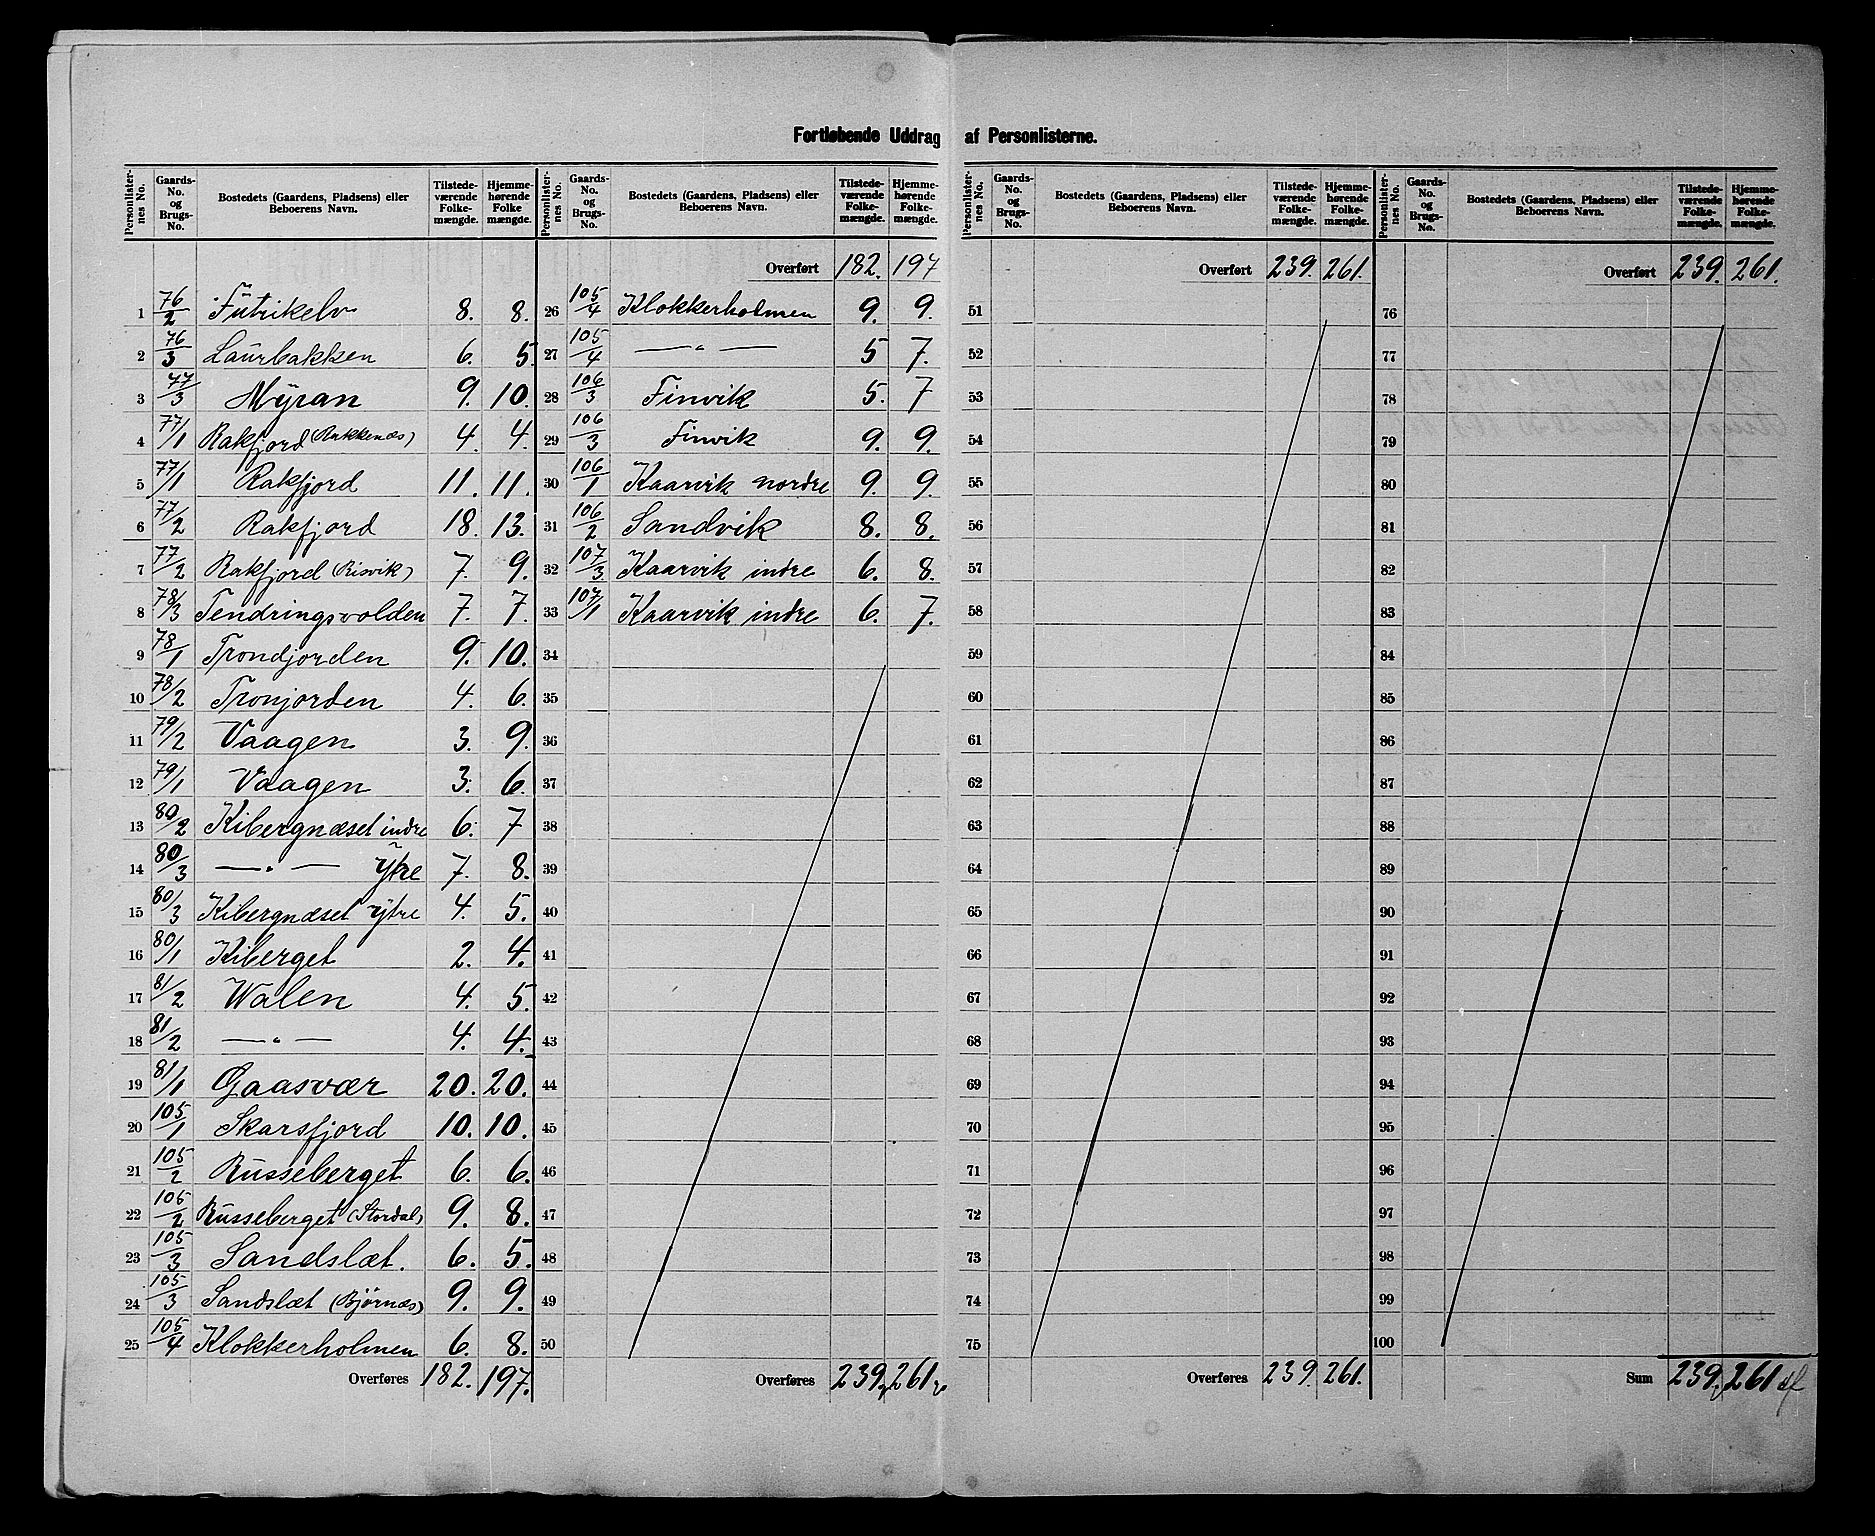 Fortløbende Uddrag af Personlisterne.
Personlister-nes No. | Gaards-No. og Brugs-No. | Bostedets (Gaardens, Pladsens) eller Beboerens Navn. | Tilstede-værende Folke-mængde. | Hjemme-hørende Folke mængde.
1 76/2 Futrikelv 8. 8.
2 76/3 Laurbakken 6. 5
3 77/3 Myran 9. 10.
4 77/1 Rakfjord (Rakkenæs) 4. 4.
5 77/1 Rakfjord 11. 11.
6 77/2 Rakfjord 18. 13.
7 77/2 Rakfjord (Risvik) 7. 9.
8 78/3 Tendringsvolden 7. 7.
9 78/1 Trondjorden 9. 10.
10 78/2 Tronjorden 4. 6.
11 79/2 Vaagen 3. 9.
12 79/1 Vaagen 3. 6.
13 80/2 Kibergnæset indre 6. 7
14 80/3 — " — ytre 7. 8.
15 80/3 Kibergnæset ytre 4. 5.
16 80/1 Kiberget 2. 4.
17 81/2 Walen 4. 5.
18 81/2 — " — 4. 4.
19 81/1 Gaasvær 20. 20.
20 105/1 Skarsfjord 10. 10.
21 105/2 Russeberget 6. 6.
22 105/2 Russeberget (Stordal) 9. 8.
23 105/3 Sandslæt. 6. 5.
24 105/3 Sandslæt (Bjørnæs) 9. 9.
25 105/4 Klokkerholmen 6. 8.
Overføres 182. 197.
Personlister-nes No. | Gaards-No. og Brugs-No. | Bostedets (Gaardens, Pladsens) eller Beboerens Navn. | Tilstede-værende Folke-mængde. | Hjemme-hørende Folke-mængde.
Overført 182. 197
26 105/4 Klokkerholmen 9. 9.
27 105/4 — " — 5 7.
28 106/3 Finvik 5. 7
29 106/3 Finvik 9. 9.
30 106/1 Kaarvik nordre 9. 9.
31 106/2 Sandvik 8. 8.
32 107/3 Kaarvik indre 6. 8.
33 107/1 Kaarvik indre 6. 7.
34
35
36
37
38
39
40
41
42
43
44
45
46
47
48
49
50
Overføres 239. 261
Personlister-nes No. | Gaards-No. og Brugs-No. | Bostedets (Gaardens, Pladsens) eller Beboerens Navn. | Tilstede-værende Folke-mængde. | Hjemme-hørende Folke-mængde.
Overført 239. 261.
51
52
53
54
55
56
57
58
59
60
61
62
63
64
65
66
67
68
69
70
71
72
73
74
75
Overføres 239. 261.
Personlister-nes No. | Gaards-No. og Brugs-No. | Bostedets (Gaardens, Pladsens) eller Beboerens Navn. | Tilstede-værende Folke-mængde. | Hjemme-hørende Folke-mængde.
Overført 239. 261.
76
77
78
79
80
81
82
83
84
85
86
87
88
89
90
91
92
93
94
95
96
97
98
99
100
Sum 239. 261